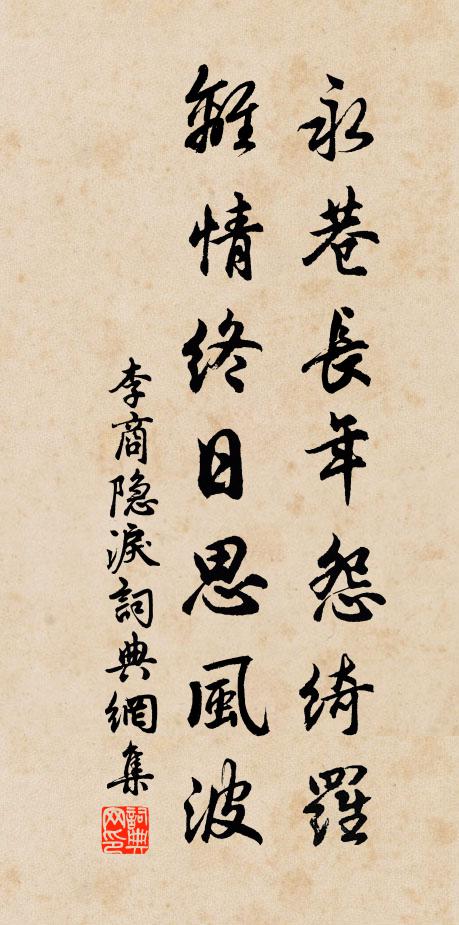 永巷長年怨綺羅
離情終日思風波
李商隐淚詞典網集
詞典网印